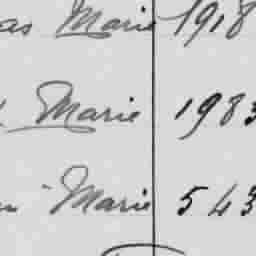 as Marie 1918
Marie 1983
Marie 543